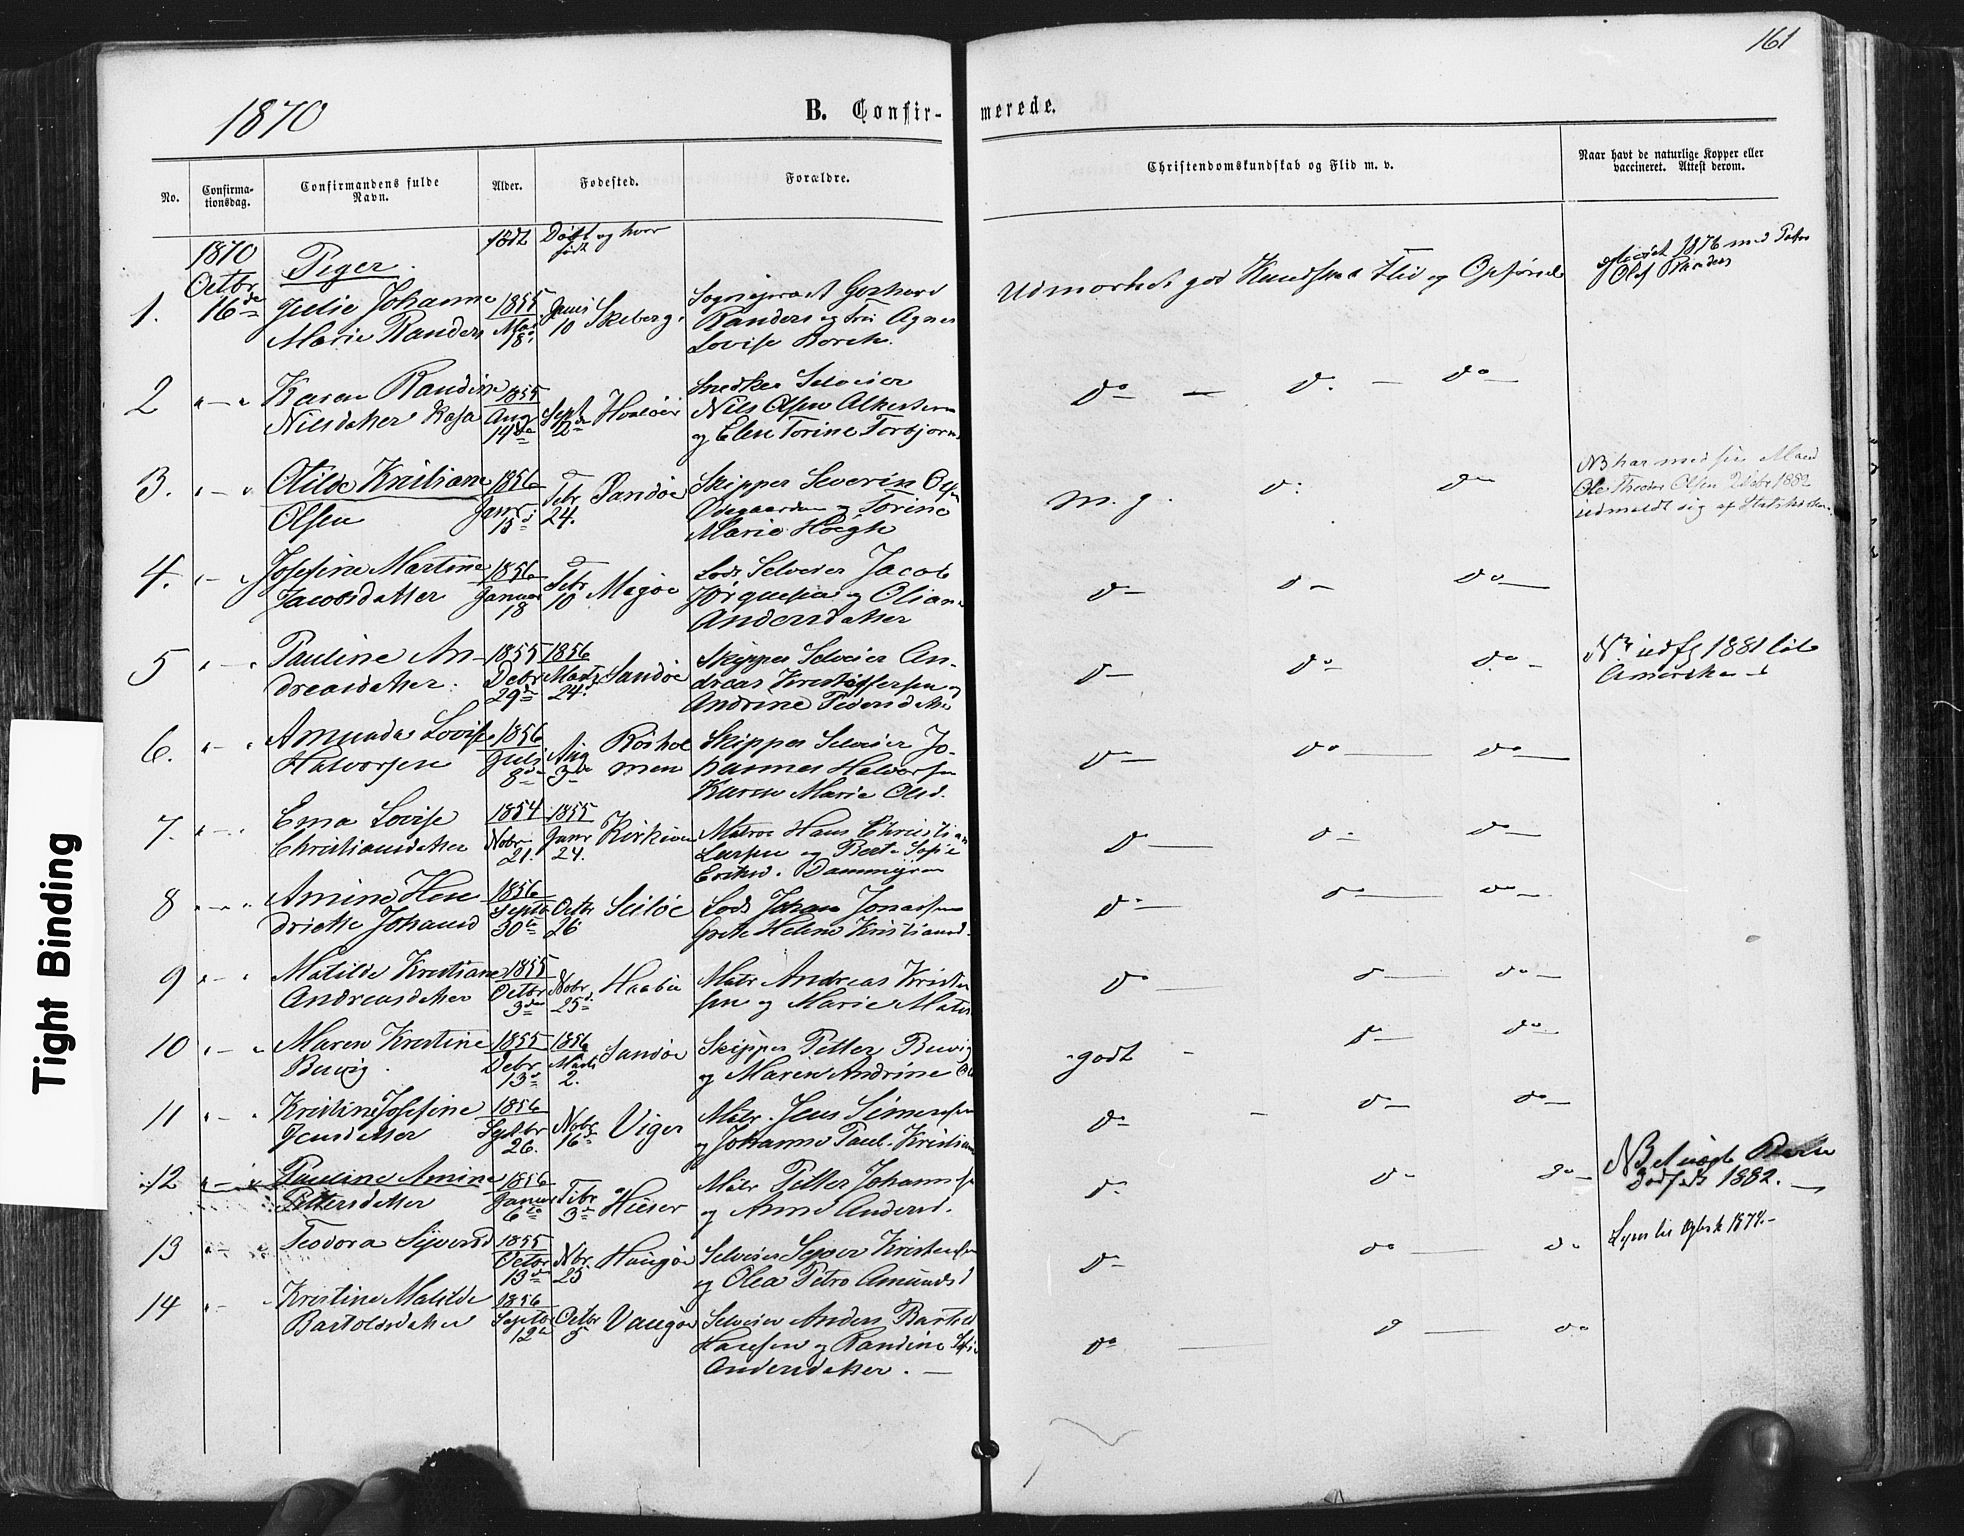 161
1870
B. Confir-
merede.
No.
Confirma-
tionsdag.
Confirmandens fulde
Navn.
Alder.
Fødested.
Forældre.
Christendomskundskab og Flid m. v.
Naar havt de naturlige Kopper eller
vaccineret. Attest derom.
1870
Octbr
16de
Piger.
født
Døbt og hvor
født
1.
Julie Johanne
Marie Randers
1855
Mai
18
Juni
10
Skeberg.
Gerhard
Randers og Agnes
Lovise
Udmærket god Kundskab Flid og Opførsel
1876 med
Olaf Randers
2
" — "
Karen Randine
Nilsdatter
1855
Aug
14de
Sept
2de
Hvaløer
Snedker Selveier
Nils Olsen
og Elen Torine Torbjorns
do — do — do —
3.
" — "
Otilde Kristiane
Olsen
1856
Janr
15
Febr
24.
Sandøe
Skipper Severin Olsen
og Torine
Marie Høegh
m. g. do do
NB har med sin Mand
Ole Theodor Olsen 1882
udmeldt sig af Statskirken
4.
" — "
Josefine Martine
Jacobsdatter
1856
Januar
18
Febr
10
Magøe
Lods Selveier Jacob
og Oliane
Andersdatter
do — do — do —
5
" — "
Pauline An-
dreasdatter.
1855
Debr
29de
1856
Marts
24.
Sandøe
Skipper Selveier An-
dreas Kristoffersen og
Andrine Pedersdatter
do — do — do —
NB udfl 1881 til
Amerika
6.
" — "
Amunda Lovise
Halvorsen
1856
Juli
8de
Aug
3de
Røshol
men
Skipper Selveier Jo-
hannes Halvorsen
Karen Marie Olsd.
do — do — do —
7.
" — "
Ema Lovise
Christiansdatter
1854
Nobr
21.
1855
Janr
24.
Kirkøen
Matros Hans Christian
Larsen og Berte Sofie
Eriksd. Dammyren
do — do — do —
8
" — "
Amine Hen
driette Johansd
1856
Septb
30te
Octbr
26
Seiløe
Lods Johan Jonassen
Grete Helene Kristiansd
do — do — do —
9
" — "
Matilde Kristiane
Andreasdatter
1855
Octbr
3den
Nobr
25d.
Matr Andreas Kristen
sen og Marie
do — do — do —
10
" — "
Maren Kristine
1855
Debr
13de
1856
Marts
2.
Sandøe
Skipper Petter
og Maren Andrine
godt - do — do —
11
" — "
Kristine Josefine
Jensdatter
1856
Septbr
26.
Nobr
16de
Viger
Matr. Jens Simensen
og Johanne Paul. Kristian
do — - do — do —
12
" — "
Pauline Amine
Pettersdatter
1856
Januar
6te
Febr
3de
Matr Petter Johannse
og Anne Andersd.
do do do —
NB
1882. —
13
" — "
Teodora Syversd
1855
Octbr
13de
Nbr
25
Selveier Syver Kristensen
og Olea Petra Amundsd
do — do — do
14
" — "
Kristine Matilde
Bartolsdatter
1856
Septbr
12te
Octbr
5
Selveier Anders
Hansen og Randine
Andersdatter. —
do — do — do
Tight Binding